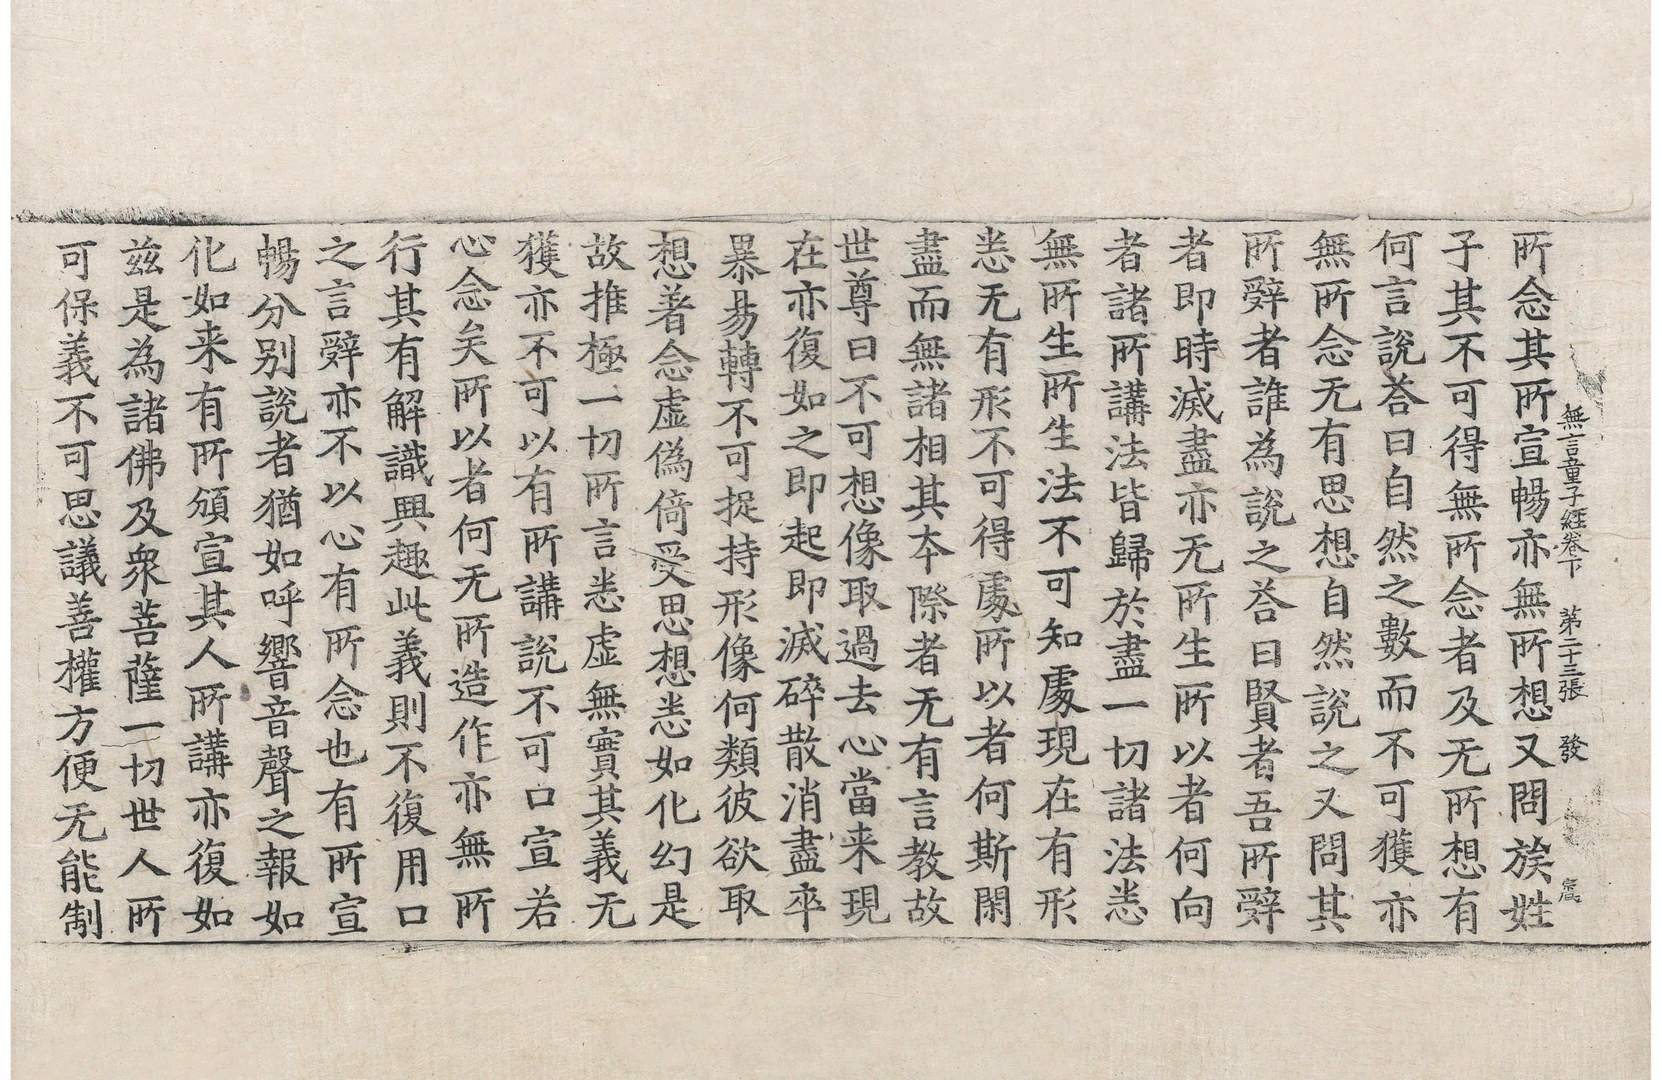 無言童子經卷下 第二十三張 發
所念其所宣暢亦無所想又問族姓
子其不可得無所念者及无所想有
何言說荅曰自然之數而不可獲亦
無所念无有思想自然說之又問其
所辭者誰為說之荅曰賢者吾所辭
者即時滅盡亦无所生所以者何向
者諸所講法皆歸於盡一切諸法悉
無所生所生法不可知處現在有形
悉无有形不可得處所以者何斯閑
盡而無諸相其本際者无有言教故
世尊曰不可想像取過去心當来現
在亦復如之即起即滅碎散消盡卒
暴易轉不可捉持形像何類彼欲取
想著念虛偽倚受思想悉如化幻是
故推極一切所言悉虛無實其義无
獲亦不可以有所講說不可口宣若
心念矣所以者何无所造作亦無所
行其有解識興趣此義則不復用口
之言辭亦不以心有所念也有所宣
暢分別說者猶如呼響音聲之報如
化如来有所頒宣其人所講亦復如
茲是為諸佛及衆菩薩一切世人所
可保義不可思議善權方便无能制